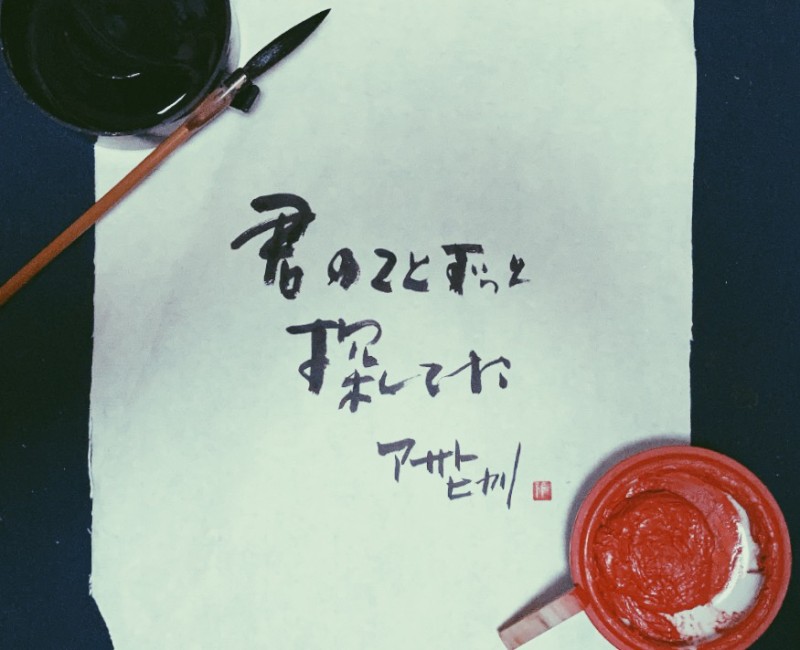 君のことずっと
探してた
アサト
ヒカリ